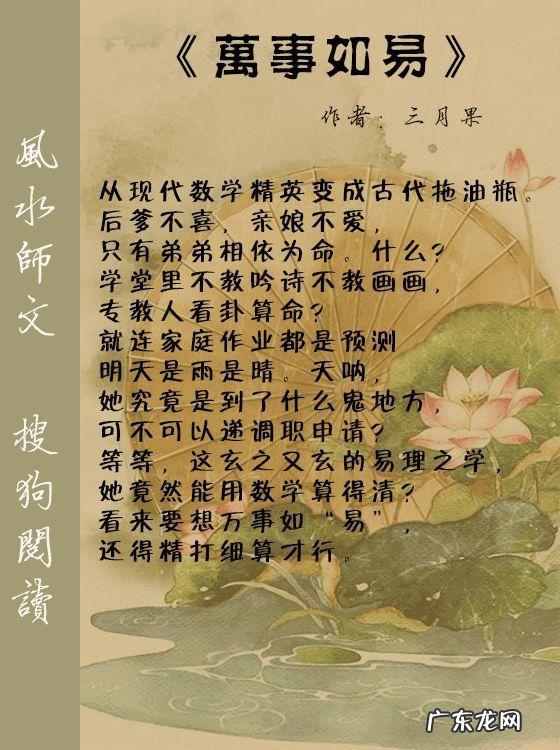 《萬事如易》
作者：三月果
从现代数学精英变成古代拖油瓶。
后爹不喜，亲娘不爱，
只有弟弟相依为命。什么？
学堂里不教吟诗不教画画，
专教人看卦算命？
就连家庭作业都是预测
明天是雨是晴。天呐，
她究竟是到了什么鬼地方，
可不可以递调职申请？
等等，这玄之又玄的易理之学，
她竟然能用数学算得清？
看来要想万事如“易”，
还得精打细算才行。
風水師文 搜狗閱讀
广东龙网